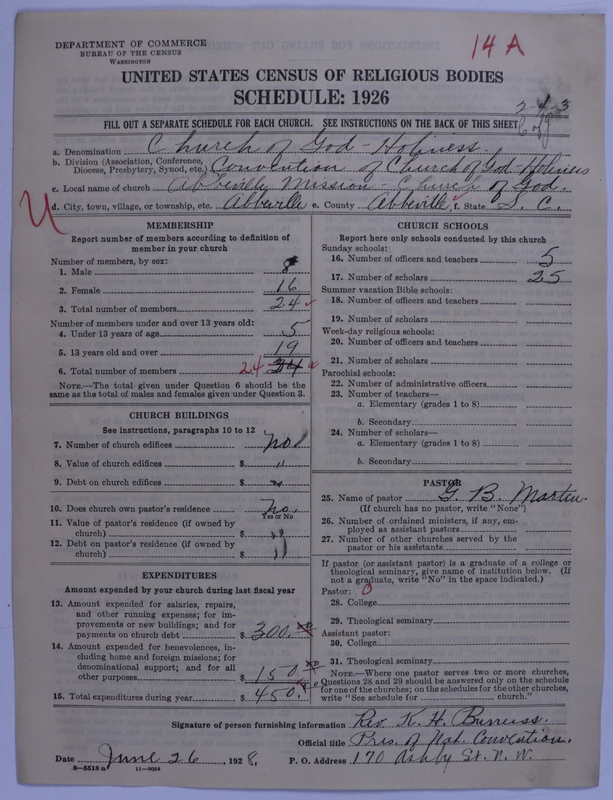 14 A
DEPARTMENT OF COMMERCE
BUREAU OF THE CENSUS
WASHINGTON
UNITED STATES CENSUS OF RELIGIOUS BODIES
SCHEDULE: 1926
2-4-3
FILL OUT A SEPARATE SCHEDULE FOR EACH CHURCH. SEE INSTRUCTIONS ON THE BACK OF THIS SHEET
a. Denomination Church of God - Holiness.
b. Division (Association, Conference, Diocese, Presbytery, Synod, etc.) Convention of Church of God Holiness
c. Local name of church Abbeville Mission - Church of God.
d. City, town, village, or township, etc. Abbeville e. County Abbeville f. State S. C.
MEMBERSHIP
Report number of members according to definition of
member in your church
Number of members, by sex:
1. Male 8
2. Female 16
3. Total number of members 24
Number of members under and over 13 years old:
4. Under 13 years of age 5
5. 13 years old and over 19
6. Total number of members 24 34
NOTE.—The total given under Question 6 should be the
same as the total of males and females given under Question 3.
CHURCH BUILDINGS
See instructions, paragraphs 10 to 12
7. Number of church edifices no
8. Value of church edifices $ "
9. Debt on church edifices $
10. Does church own pastor's residence No
Yes or No
11. Value of pastor's residence (if owned by
church) $ "
12. Debt on pastor's residence (if owned by
church) $ "
EXPENDITURES
Amount expended by your church during last fiscal year
13. Amount expended for salaries, repairs,
and other running expenses; for im-
provements or new buildings; and for
payments on church debt $ 300.00
14. Amount expended for benevolences, in-
cluding home and foreign missions; for
denominational support; and for all
other purposes 150.00
15. Total expenditures during year $ 450.00
CHURCH SCHOOLS
Report here only schools conducted by this church
Sunday schools:
16. Number of officers and teachers 5
17. Number of scholars 25
Summer vacation Bible schools:
18. Number of officers and teachers
19. Number of scholars
Week-day religious schools:
20. Number of officers and teachers
21. Number of scholars
Parochial schools:
22. Number of administrative officers
23. Number of teachers—
a. Elementary (grades 1 to 8)
b. Secondary
24. Number of scholars—
a. Elementary (grades 1 to 8)
b. Secondary
PASTOR
25. Name of pastor G. B. Martin
(If church has no pastor, write "None")
26. Number of ordained ministers, if any, em-
ployed as assistant pastors
27. Number of other churches served by the
pastor or his assistants
If pastor (or assistant pastor) is a graduate of a college or
theological seminary, give name of institution below. (If
not a graduate, write "No" in the space indicated.)
Pastor: 0
28. College
29. Theological seminary
Assistant pastor:
30. College
31. Theological seminary
NOTE.—Where one pastor serves two or more churches,
Questions 28 and 29 should be answered only on the schedule
for one of the churches; on the schedules for the other churches,
write "See schedule for church."
Signature of person furnishing information Rev. K. H. Burruss.
Official title Pres. of Nat. Convention.
Date June 26, 1928. P. O. Address 170 Ashby St. N. W.
8-5518 a 11-9024